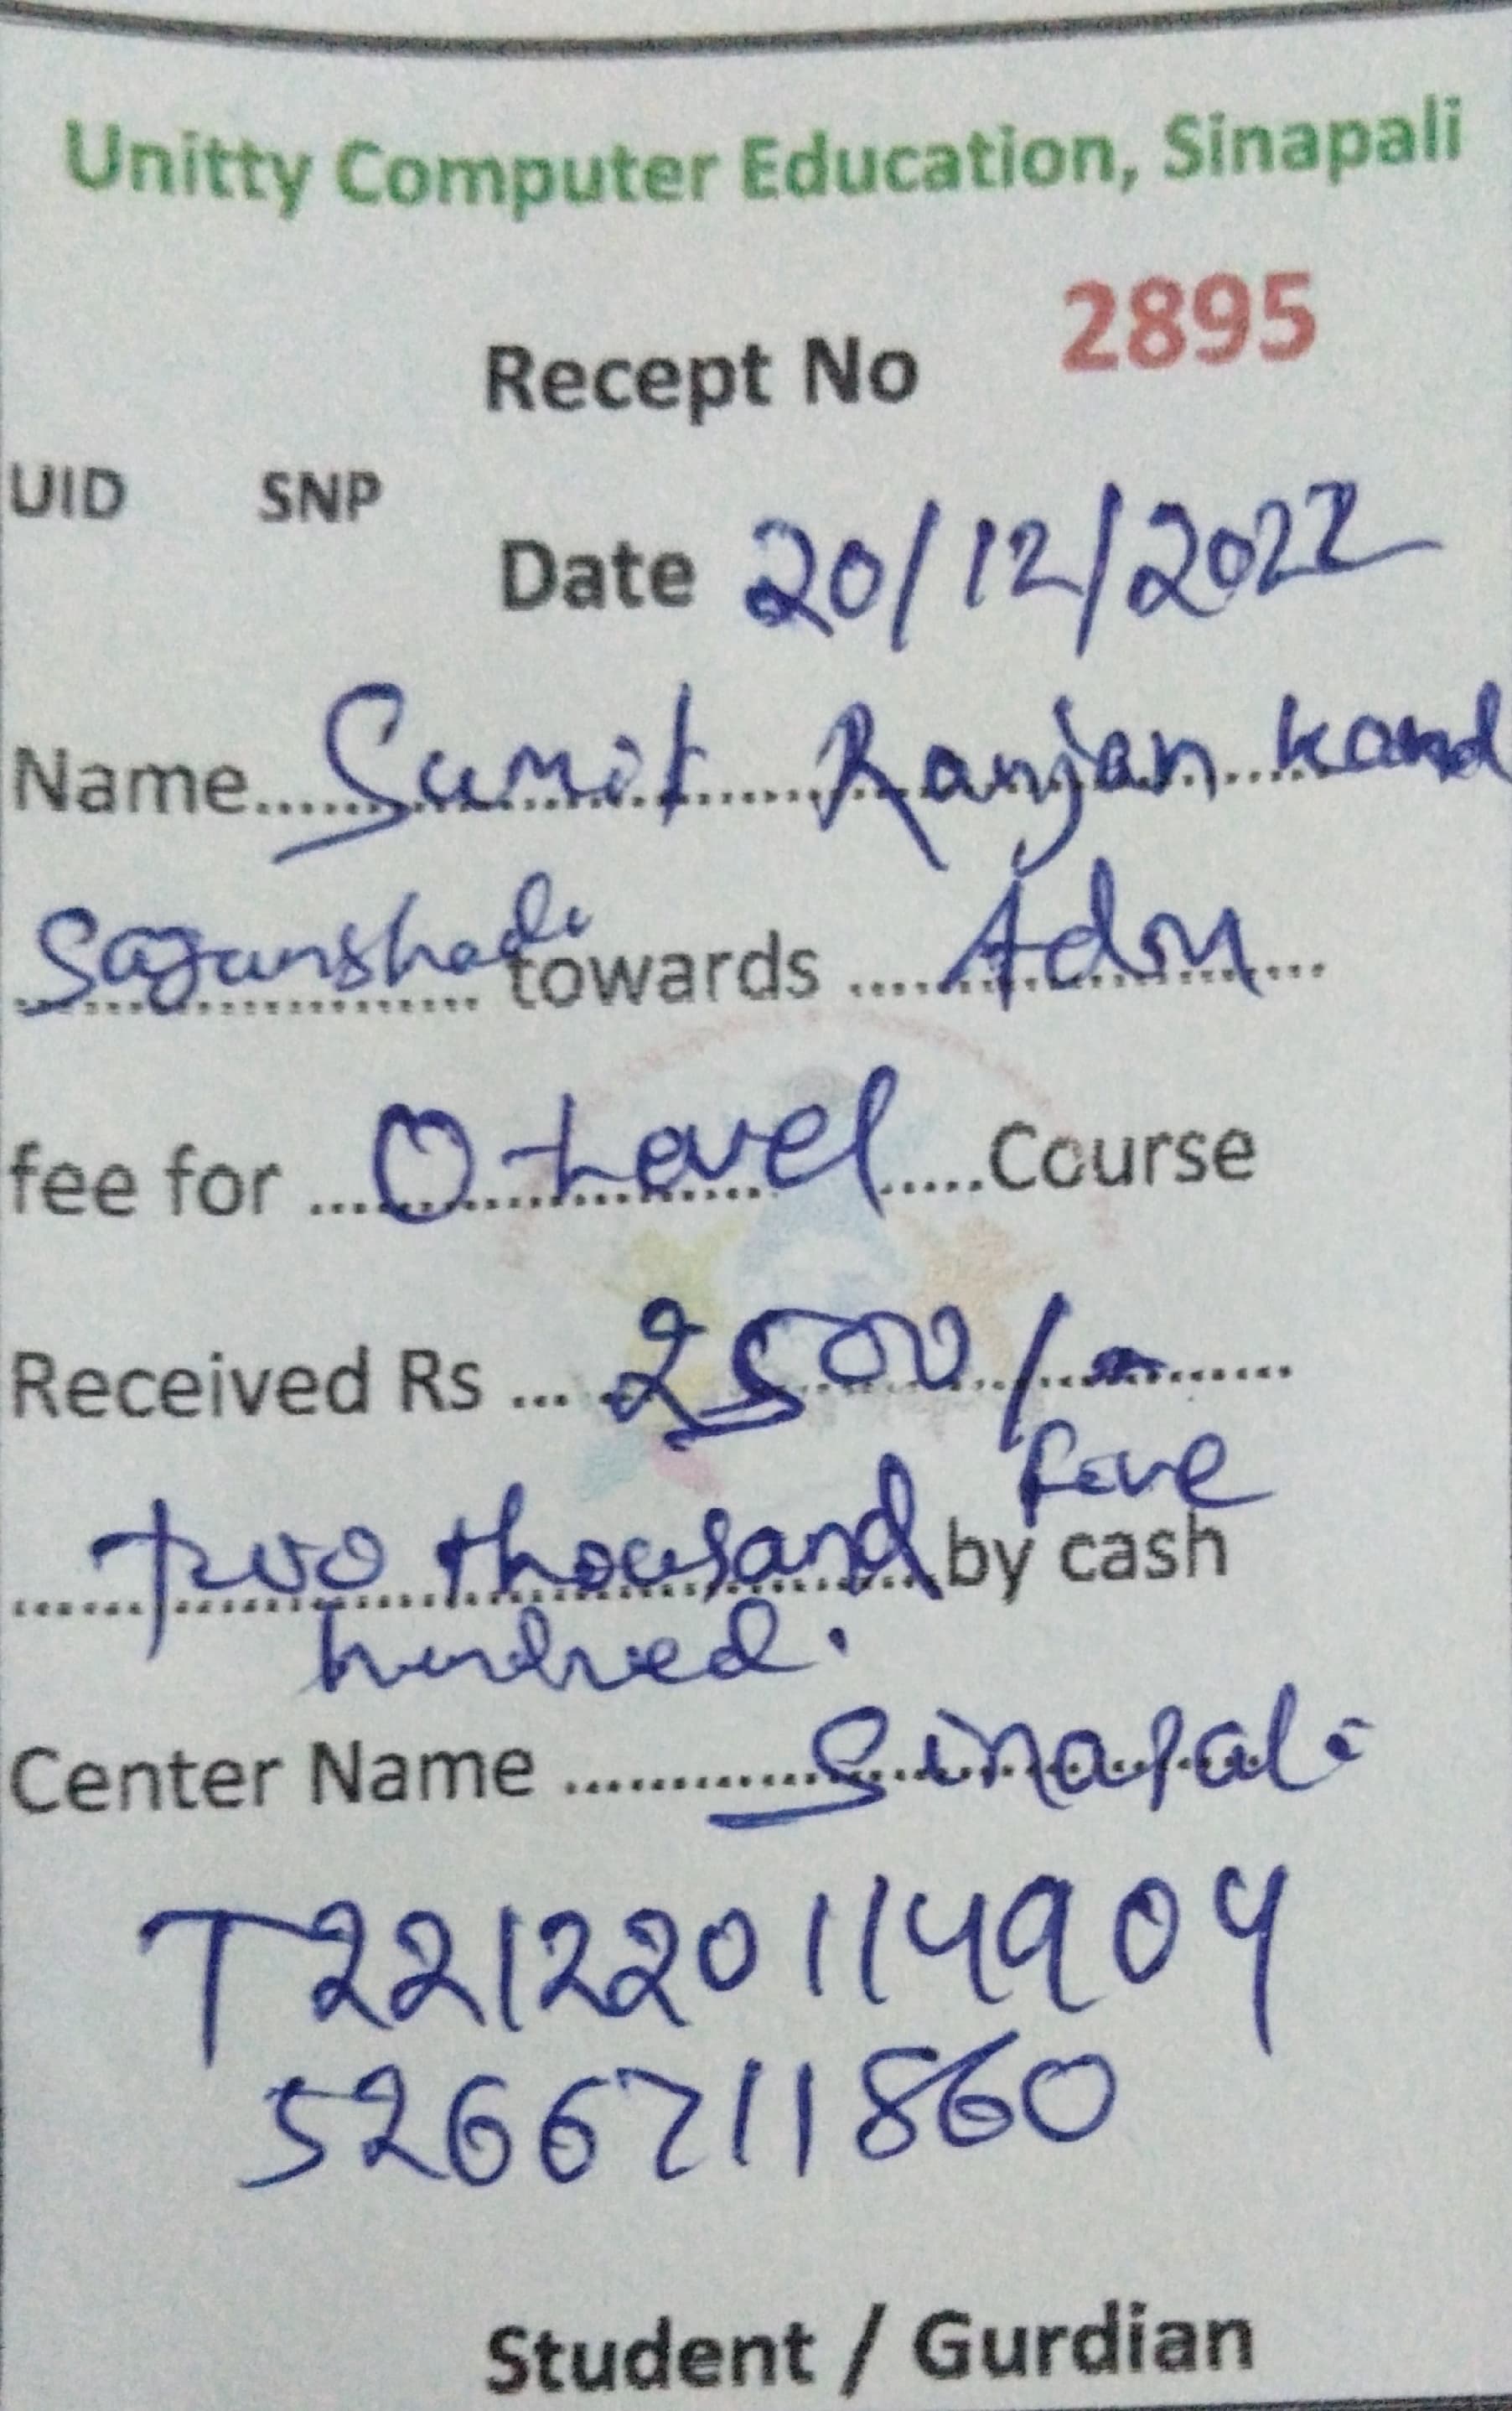 Unitty Computer Education, Sinapali
Recept No 2895
UID SNP
Date 20/12/2022
Name Sumit Ranjan kand
towards Adm
fee for O-Level Course
Received Rs 2500/-
five
two thousand by cash
hundred.
Center Name Sinapali
T221220114904
5266711860
Student / Gurdian